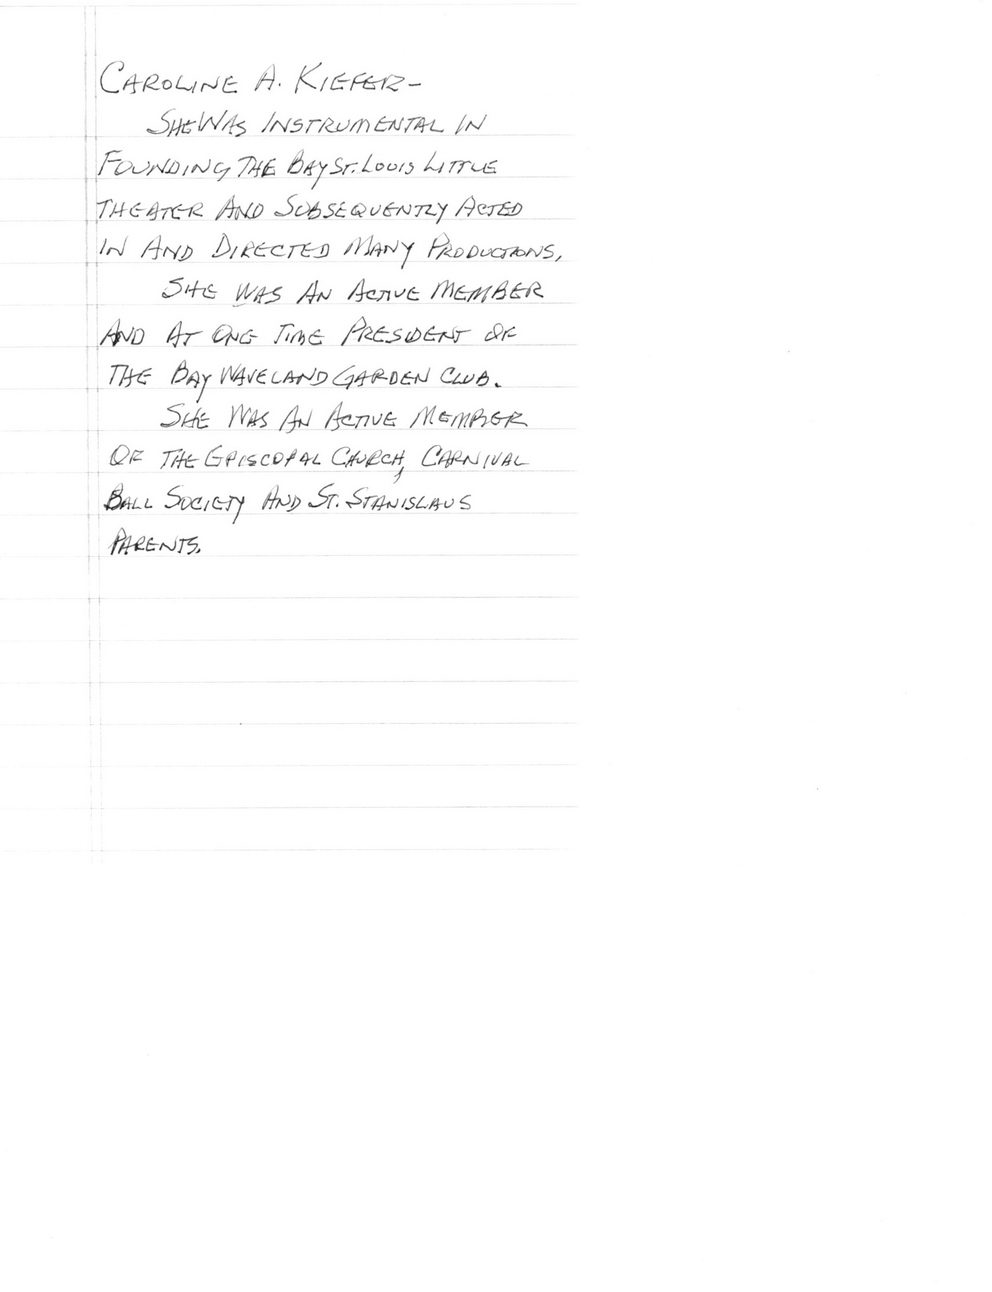 CAROLINE A. KIEFER-
SHE WAS INSTRUMENTAL IN
FOUNDING THE BAY ST. LOUIS LITTLE
THEATER AND SUBSEQUENTLY ACTED
IN AND DIRECTED MANY PRODUCTIONS.
SHE WAS AN ACTIVE MEMBER
AND AT ONE TIME PRESIDENT OF
THE BAY WAVELAND GARDEN CLUB.
SHE WAS AN ACTIVE MEMBER
OF THE EPISCOPAL CHURCH, CARNIVAL
BALL SOCIETY AND ST. STANISLAUS
PARENTS.